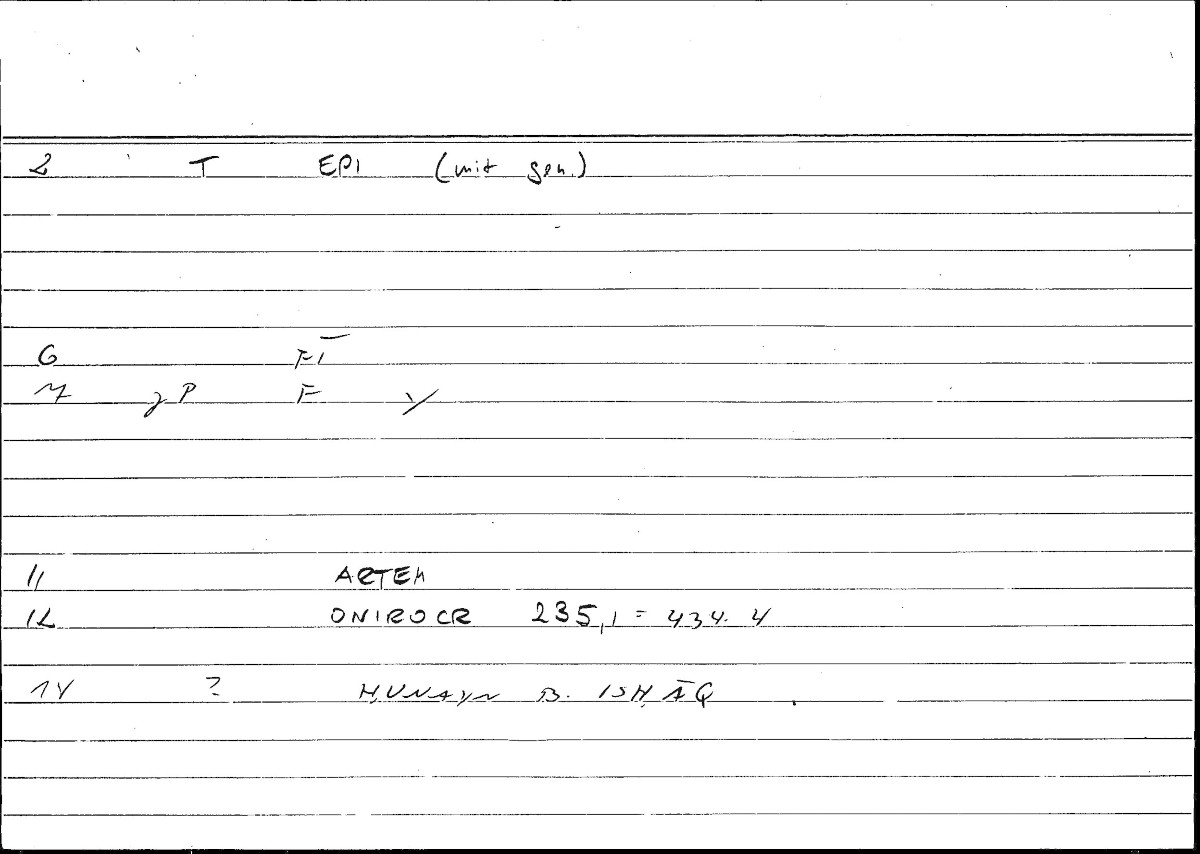 2 T EPI (mit gen.)
6 FĪ
7 P F Y
11 ARTEM
12 ONIROCR 235,1 = 434. 4
14 ? ḤUNAYN B. ISḤĀQ